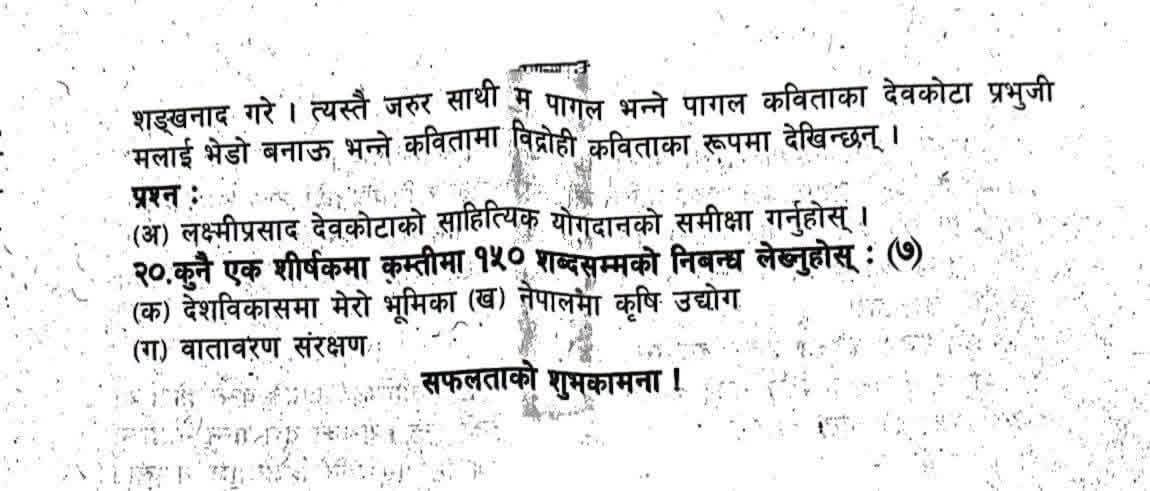 शङ्खनाद गरे । त्यस्तै जरुर साथी म पागल भन्ने पागल कविताका देवकोटा प्रभुजी
मलाई भेडो बनाऊ भन्ने कवितामा विद्रोही कविताका रूपमा देखिन्छन् ।
प्रश्न :
(अ) लक्ष्मीप्रसाद देवकोटाको साहित्यिक योगदानको समीक्षा गर्नुहोस् ।
२०.कुनै एक शीर्षकमा कम्तीमा १५० शब्दसम्मको निबन्ध लेख्नुहोस् : (७)
(क) देशविकासमा मेरो भूमिका (ख) नेपालमा कृषि उद्योग
(ग) वातावरण संरक्षण
सफलताको शुभकामना !